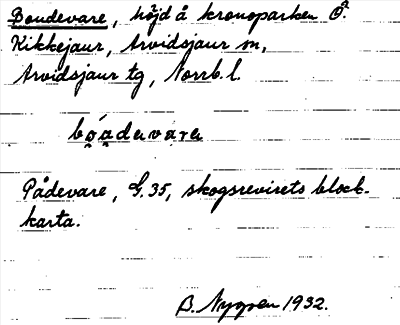 Boudevare, höjd å kronoparken Ö.
Kikkejaur, Arvidsjaur sn,
Arvidsjaur tg, Norrb. l.
bǫ́adevarₑ
Pådevare, G. 35, skogsrevirets block-
karta.
B. Nygren 1932.